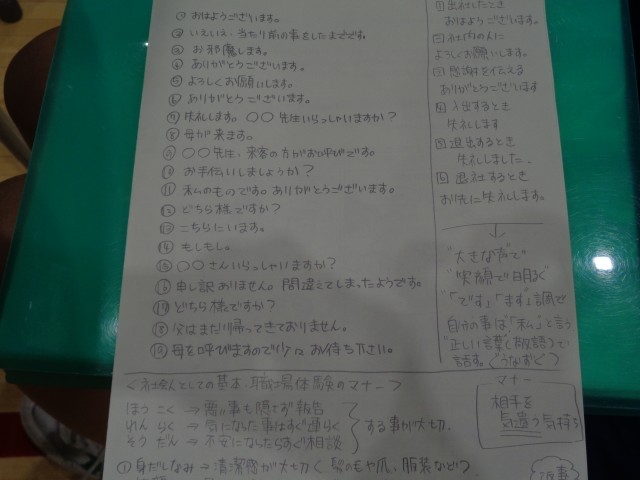 ① おはようございます。
② いえいえ、当たり前の事をしたまでです。
③ お邪魔します。
④ ありがとうございます。
⑤ よろしくお願いします。
⑥ ありがとうございます。
⑦ 失礼します。〇〇先生いらっしゃいますか?
⑧ 母が来ます。
⑨ 〇〇先生、来客の方がお呼びです。
⑩ お手伝いしましょうか?
⑪ 私のものです。ありがとうございます。
⑫ どちら様ですか?
⑬ こちらにいます。
⑭ もしもし。
⑮ 〇〇さんいらっしゃいますか?
⑯ 申し訳ありません。間違えてしまったようです。
⑰ どちら様ですか?
⑱ 父はまだ帰ってきておりません。
⑲ 母を呼びますので少々お待ち下さい。
1 出社したとき
おはようございます。
2 社内の人に
よろしくお願いします。
3 感謝を伝える
ありがとうございます
4 入出するとき
失礼します
5 退出するとき
失礼しました。
6 退社するとき
お先に失礼します。
↓
"大きな声"で
"笑顔"で"明るく"
"「です」「ます」調で
自分の事は「私」と言う
"正しい言葉"(敬語)で
話す。(うなずく)
<社会人としての基本、職場体験のマナー>
ほうこく ⇒ 悪い事も隠さず報告
れんらく ⇒ 気になった事はすぐ連らく
そうだん ⇒ 不安になったらすぐ相談
する事が大切。
マナー
相手を
気遣う気持ち
① 身だしなみ ⇒ 清潔感が大切(髪のもや爪、服装など)
返事